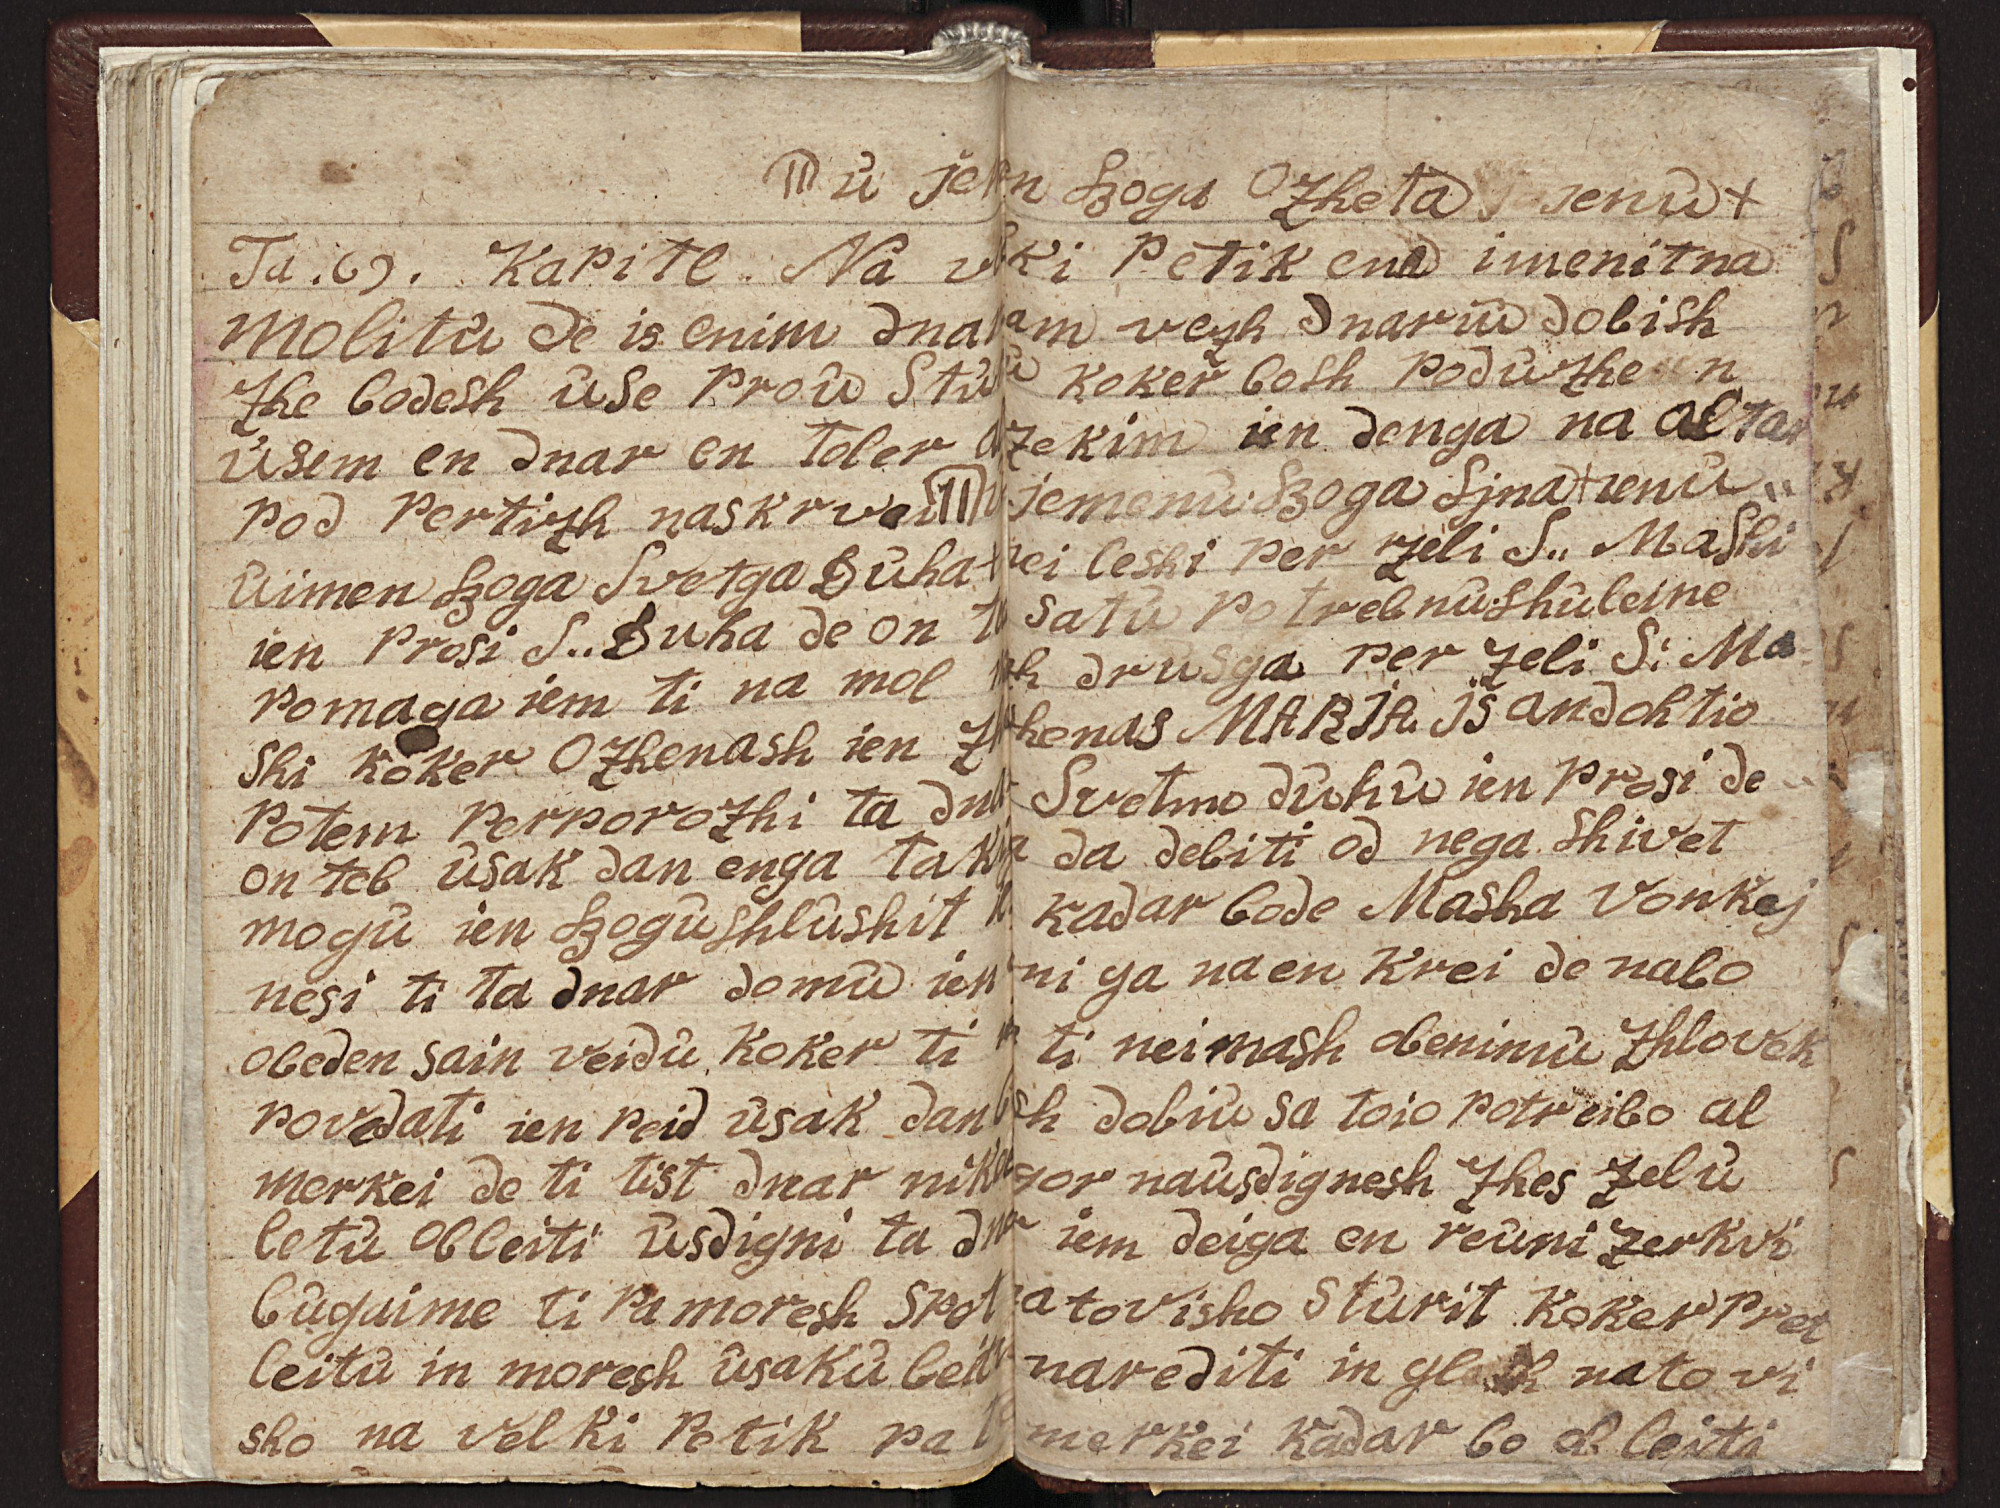 û Jemen Boga Ozheta jenû +
Ta .6). Kapitl. Na velki Petik ena imenitna
Molitu de is enim dnaram vezh dnarû dobish
Zhe bodesh ûse Proû Stûrû koker bosh Podûzhen
ûsem en dnar en toler zekim ien denga na altar
Pod Pertizh naskrvai jemenû Boga Sjna + ienû
ûimen Boga Svetga Duha + leshi Per zeli S.. Mashi
ien Prosi S.. Duha de on satû Potrebnûshûleine
Pomaga iem ti na mol drusga Per zeli S: Ma
shi koker Ozhenash ien Zhenas MARIA is andohtio
Potem Perporozhi ta dnar Svetmo dûhû ien Prosi de
on teb ûsak dan enga da debiti od nega shivet
mogû ien Bogûshlûshit kadar bode Masha vonkej
nesi ti ta dnar domû ien ni ga na en Krei de nabo
obeden sain veidû koker ti ti neimash obenimû Zhlovek
povedati ien Peid ûsak dan dobiû sa toio Potreibo al
merkei de ti tist dnar nikdar gor naûsdignesh Zhes zelû
letû obleiti ûsdigni ta dnar iem deiga en reûni zerkvi
bûgaime ti Pa moresh spet na tovisho Stûrit koker Pret
leitû in moresh ûsakû leitû narediti in glih na to vi
sho na velki Petik pa merkei kadar bo ob leiti